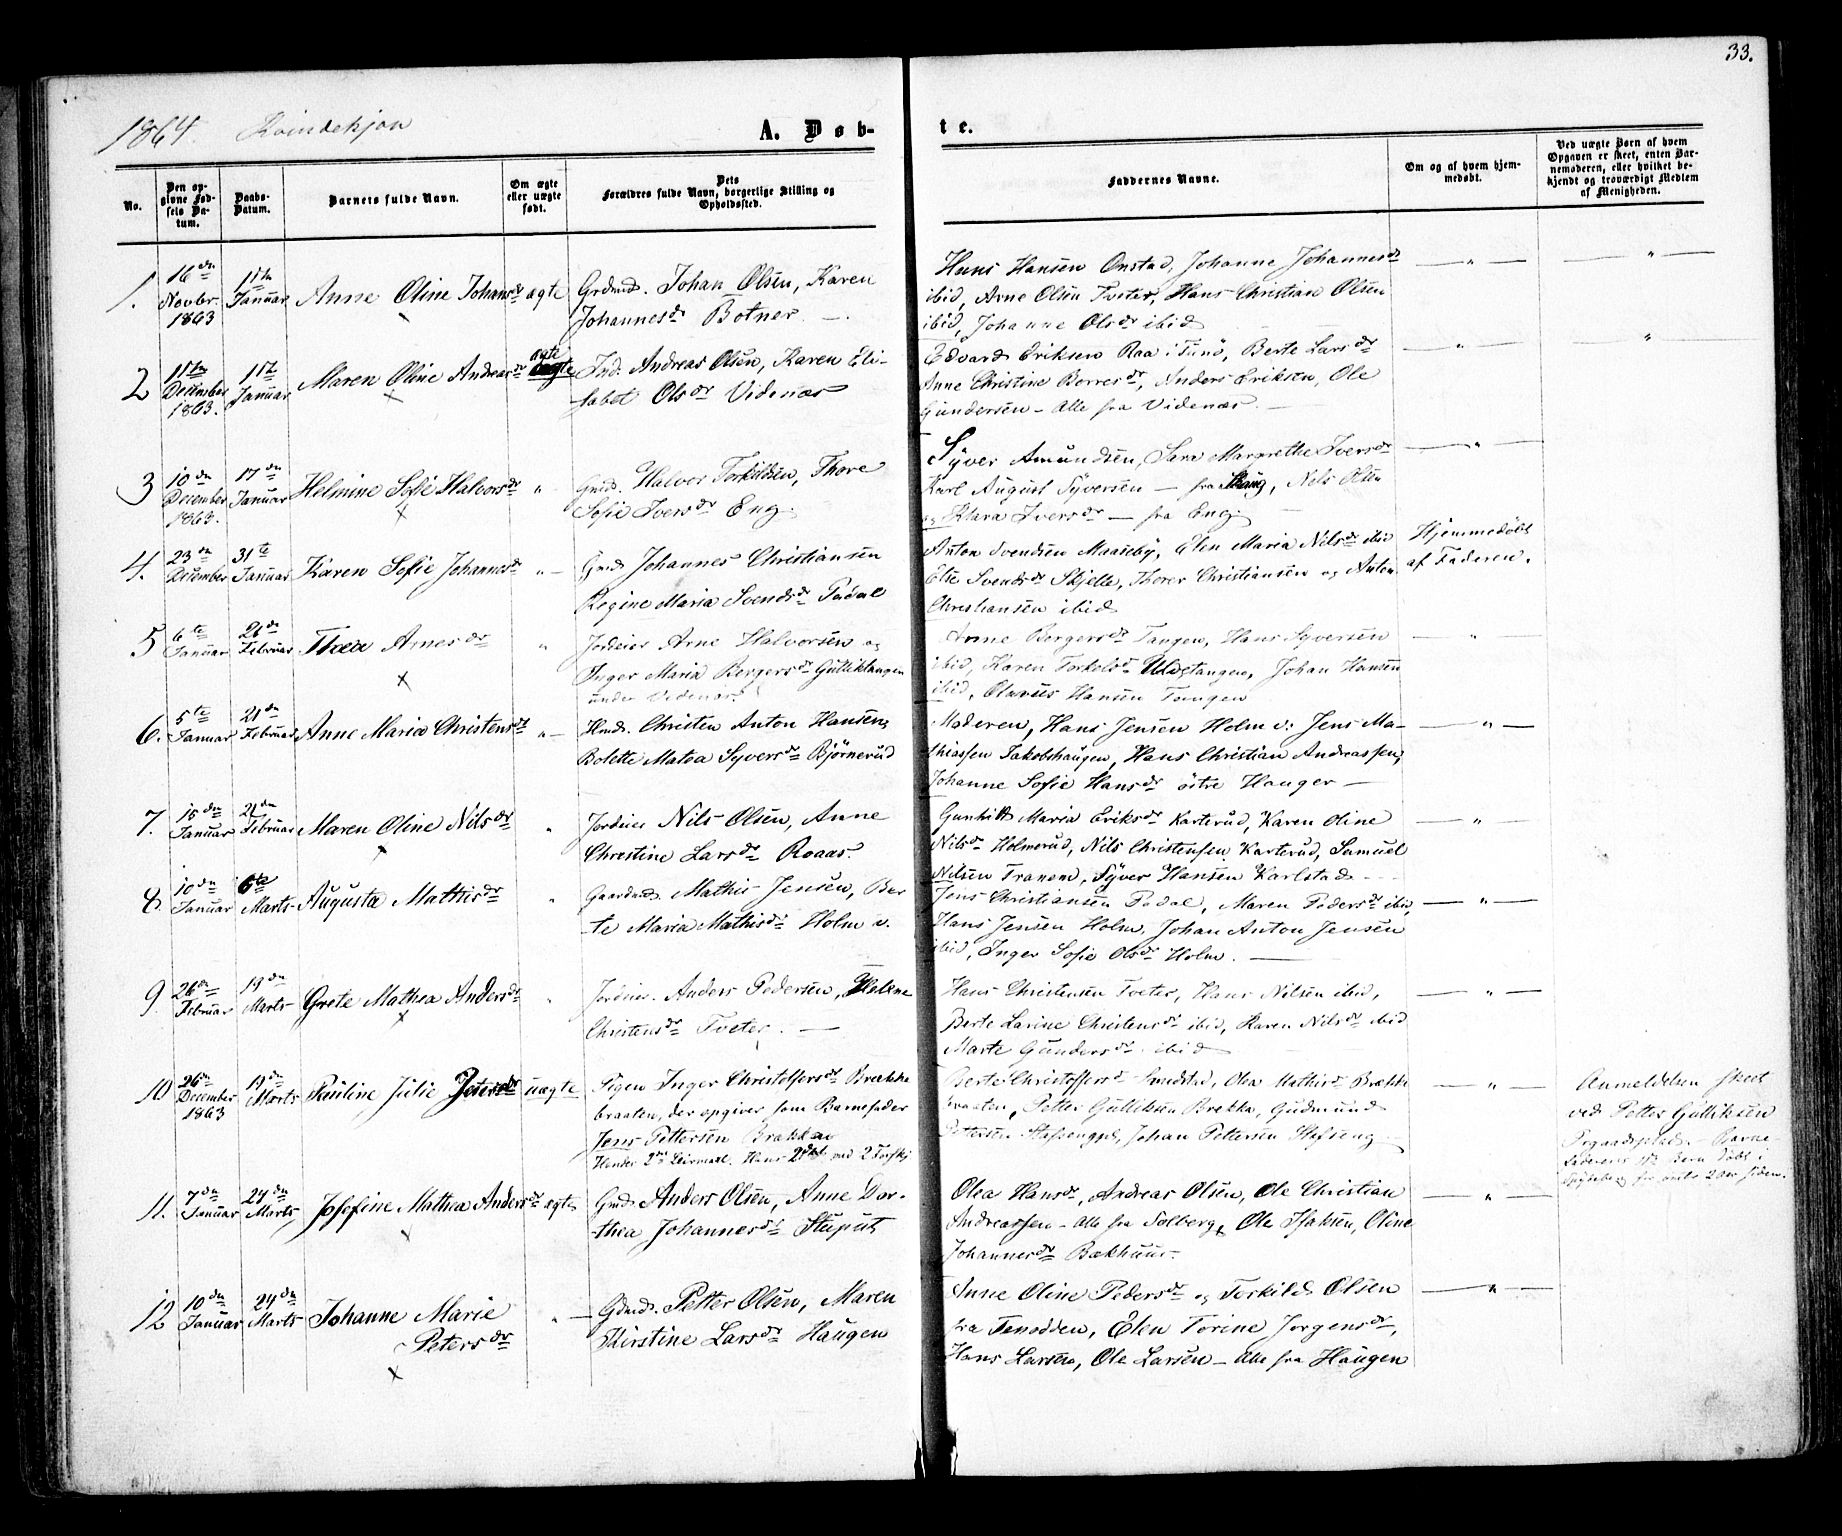 33.
1864. Kvindekjøn
A. Døb-
te.
No.
Den op-
givne Fød-
sels Da-
tum.
Daabs-
Datum.
Barnets fulde Navn.
Om ægte
eller uægte
født.
Dets
Forældres fulde Navn, borgerlige Stilling og
Opholdssted.
Faddernes Navne.
Om og af hvem hjem-
medøbt.
Ved uægte Børn af hvem
Opgaven er skeet, enten Bar-
nemoderen, eller hvilket be-
kjendt og troværdigt Medlem
af Menigheden.
1. 16de Novbr. 1863
Januar
Anne Oline Johansdr ægte
Johan Olsen, Karen
Johannesdr Botner. —
Hans Hansen Onstad, Johanne Johannesdr
ibid, Arne Olsen Tveter, Hans Christian Olsen
ibid, Johanne Olsdr ibid
— " —
— " —
2 11te December 1863.
Januar
Maren Oline Andreasdr
ægte
Ind. Andreas Olsen, Karen Eli-
sabet Olsdr Videnæs
Edvard Eriksen Raa i Tunø, Berte Larsdr
Anne Christine Borresdr, Anders Eriksen, Ole
Gundersen — Alle fra Videnæs. —
— " —
"
3 10de December 1863.
17de Januar
Helmine Sofie Halvorsdr "
Gmd. Halvor Torkildsen, Thore
Sofie Iversdr Eng.
Syver Amundsen, Sara Margrethe Iversdr
Karl August Syversen — fra Haug, Nils Olsen
og Klara Iversdr — fra Eng.
— " —
4. 23de December
31te Januar
Karen Sofie Johannesdr " —
Gmd Johannes Christiansen
Regine Maria Svendsdr Padal
Anton Svendsen Maaseby, Elen Maria Nilsdr ibid
Else Svendsdr Skjelle, Thorer Christiansen og Anton
Christiansen ibid
Hjemmedöbt
af Faderen.
5 6te Januar
26de Februar
Thea Arnesdr "
Jordeier Arne Halvorsen og
Inger Maria Borgersdr Gulliktangen
under Videnæs
Anne Borgersdr Tangen, Hans Syversen
ibid, Karen Torkelsdr Uldstangen, Johan Hansen
ibid, Olavus Hansen Tangen
— " —
6. 5te Januar
21de Februar
Anne Maria Christensdr " —
Hmd. Christen Anton Hansen,
Bolette Matea Syversdr Bjørnerud
Moderen, Hans Jensen Holm v: Jens Ma-
thiassen Jakobshaugen, Hans Christian Andreassen,
Johanne Sofie Hansdr östre Hauger —
— " —
7. 15de Januar
21de Februar
Maren Oline Nilsdr "
Jordeier Nils Olsen, Anne
Christine Larsdr Roaas.
Gunhild Maria Eriksdr Karterud, Karen Oline
Nilsdr Holmerud, Nils Christensen Karterud, Samuel
Nilsen Tranem, Syver Hansen Karlstad. —
— " —
8. 10de Januar
6te Marts
Augusta Mathisdr "
Gaardmd. Mathis Jensen, Ber
te Maria Mathisdr Holm v.
Jens Christiansen Padal, Maren Pedersdr ibid,
Hans Jensen Holm, Johan Anton Jensen
ibid, Inger Sofie Olsdr Holm. —
— " —
9. 26de Februar
19de Marts
Grete Mathea Andersdr "
Jordeier. Anders Pedersen, Helene
Christensdr Tveter. —
Hans Christensen Tveter, Hans Nilsen ibid,
Berte Larine Christensdr ibid, Karen Nilsdr ibid
Marte Gundersdr ibid
— " —
10 26de December 1863
19de Marts
Pauline Julie Jensdr uægte
Pigen Inger Christoffersdr Brække
braaten, der opgiver som Barnefader
Jens Pettersen Brække
Berte Christoffersdr Smedstad, Olea Mathisdr Brække
braaten, Petter Gulliksen Brekke, Gudmund
Pettersen, Johan Pettersen
— " —
Anmeldelsen skeet
ved Petter Gulliksen
11. 7de Januar
24de Marts
Josefine Mathea Andersdr ægte
Gmd Anders Olsen, Anne Dor-
thea Johannesdr Stuput
Olea Hansdr, Andreas Olsen, Ole Christian
Andreassen — Alle fra Solberg, Ole Isaksen, Oline
Johannesdr Bækhuus. —
— " —
12 10de Januar
24de Marts
Johanne Marie
Petersdr
" —
Gdmd. Petter Olsen, Maren
Kirstine Larsdr Haugen
Anne Oline Pedersdr og Torkild Olsen
fra Tenodden, Elen Torine Jørgensdr,
Hans Larsen, Ole Larsen — Alle fra Haugen
— " —